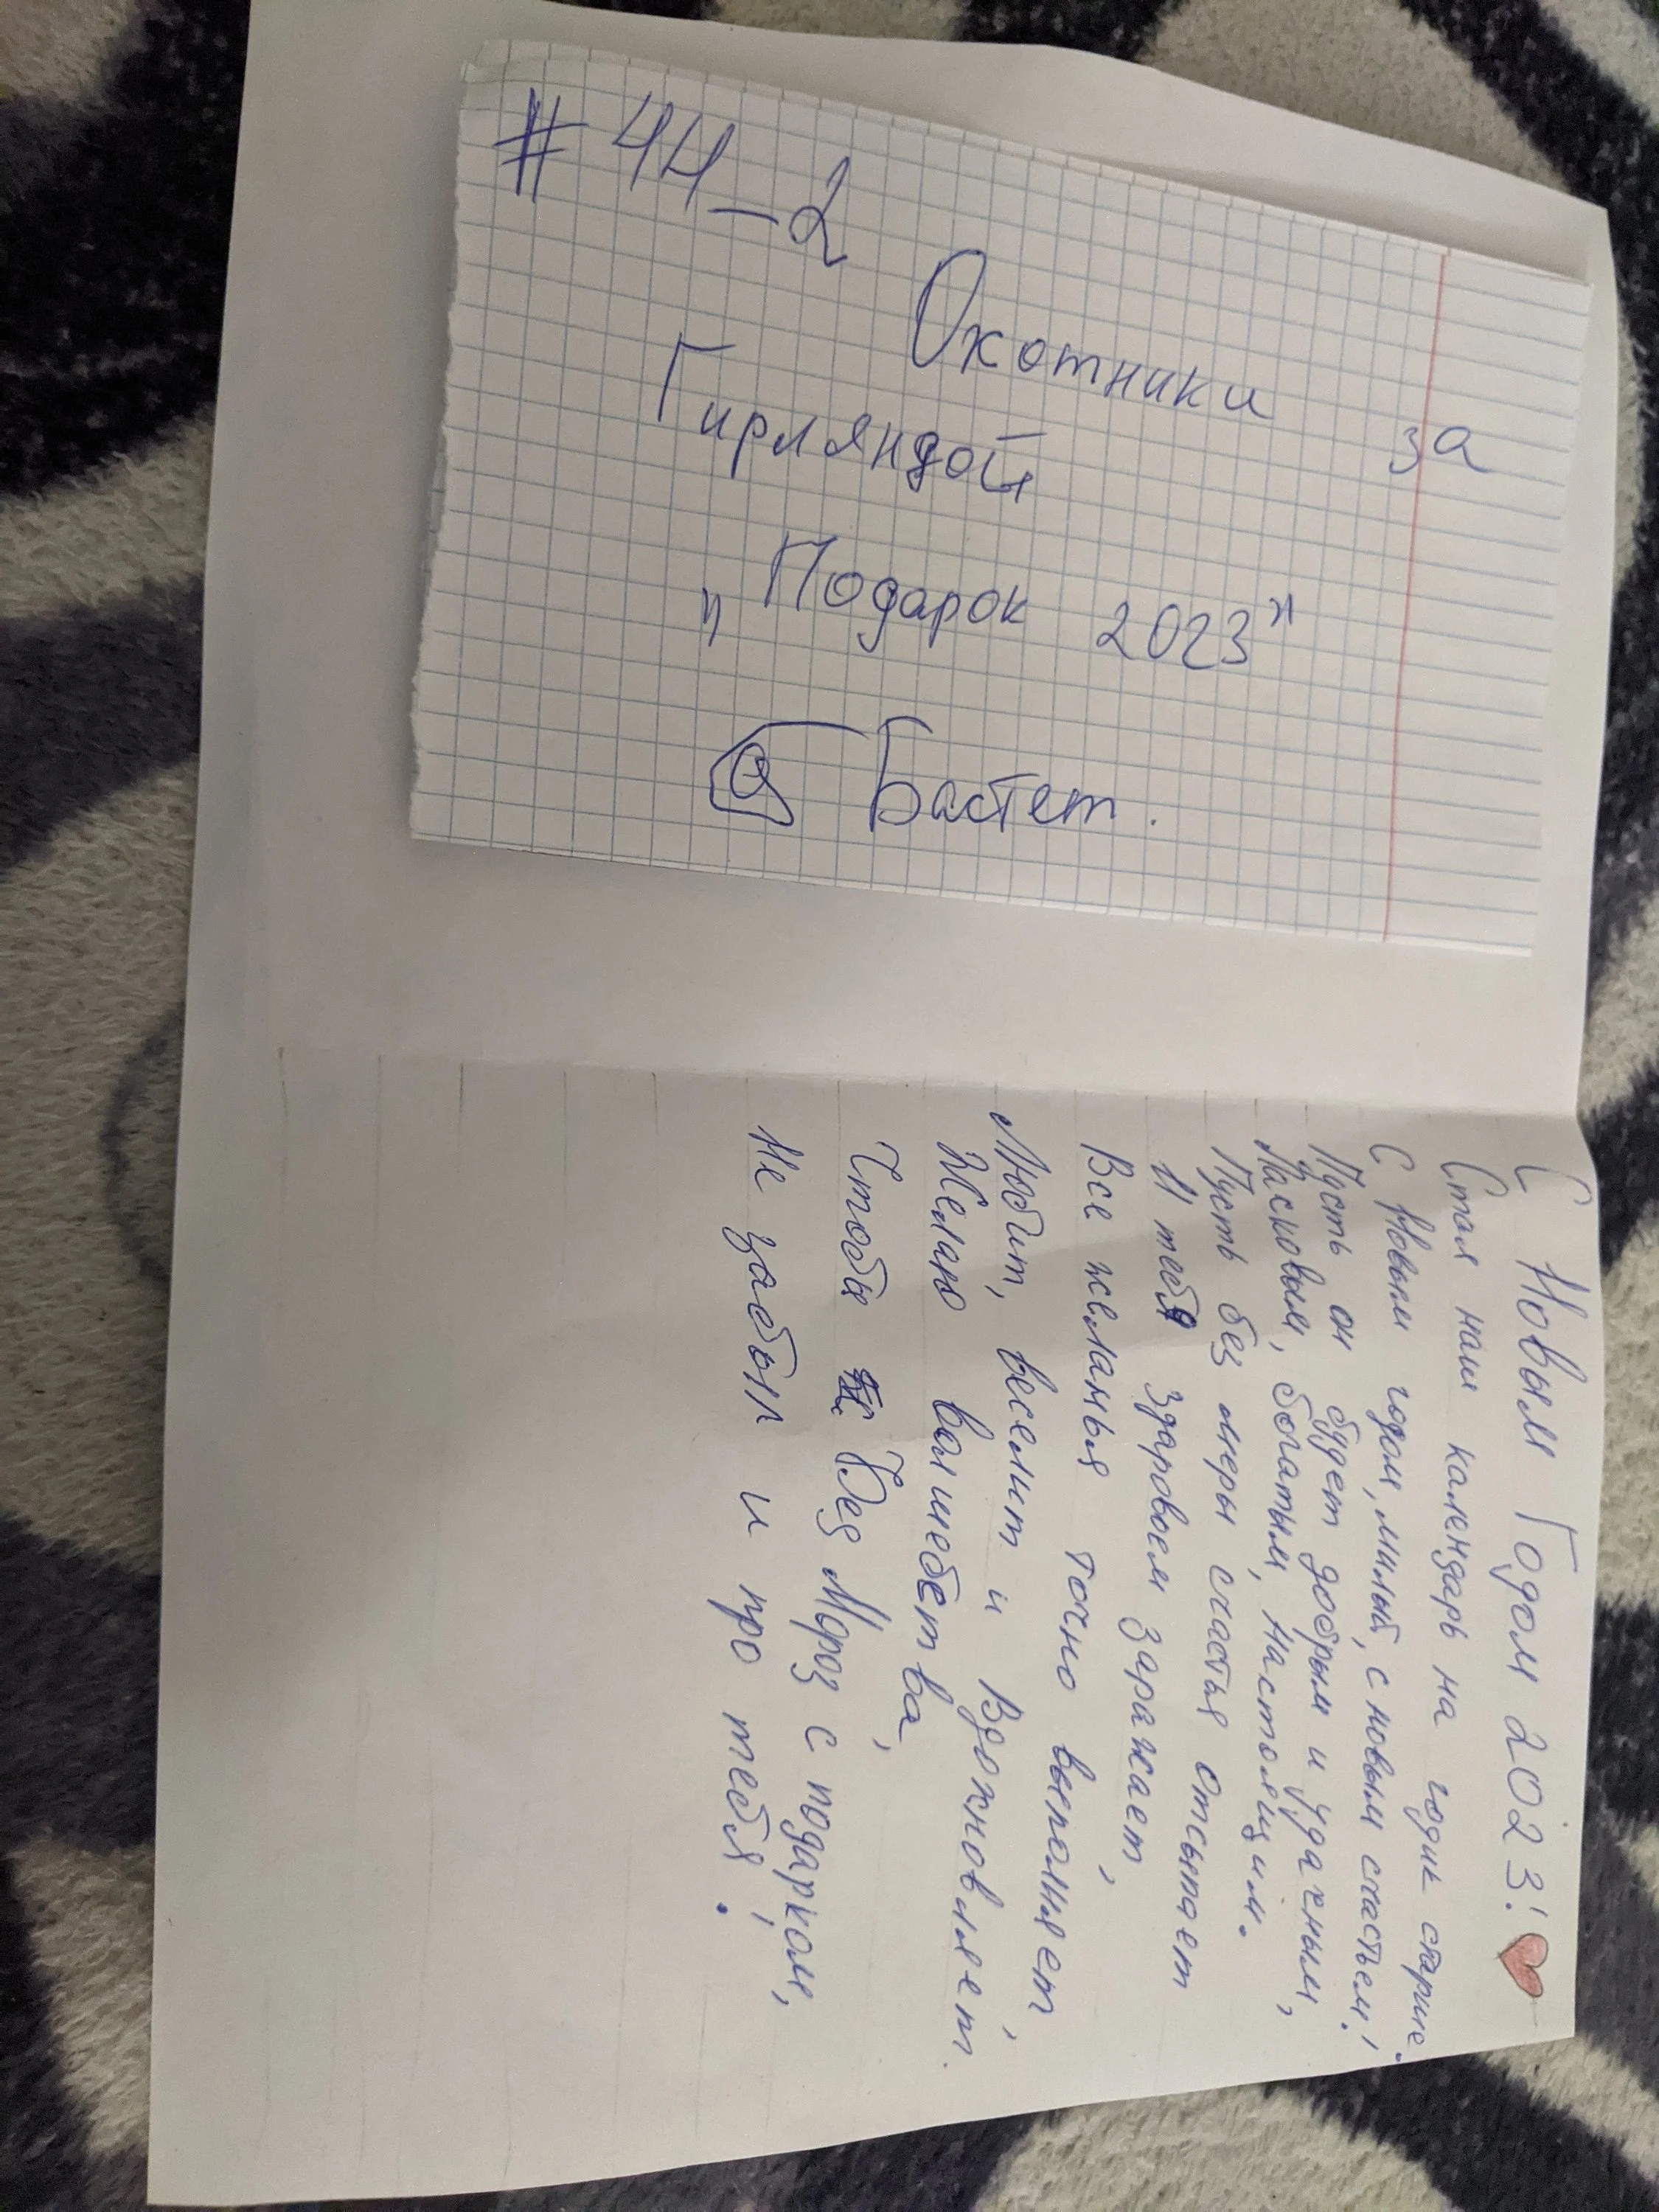 # 44-2
Охотники за
Гирляндой
"Подарок 2023"
Бастет.
С Новым Годом 2023!
Стал наш календарь на годик старше.
С Новым годом, милый, с новым счастьем!
Пусть он будет добрым и удачным,
Ласковым, богатым, настоящим.
Пусть без меры счастья отсыпает
И тебя здоровьем заражает,
Все желанья точно выполняет,
Любит, веселит и вдохновляет.
Желаю волшебства,
Чтобы Дед Мороз с подарком,
Не забыл и про тебя!